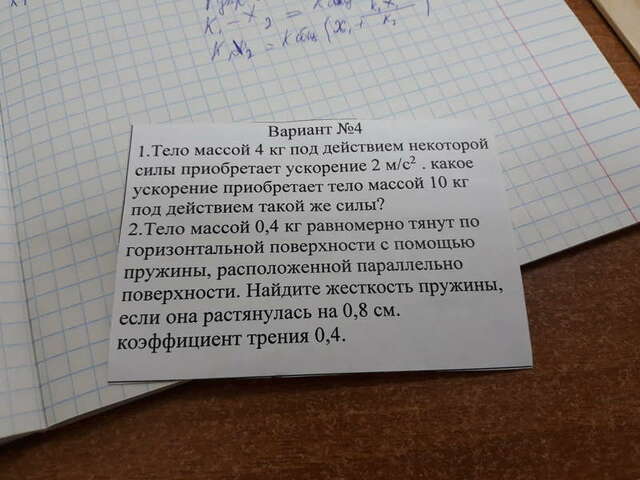 K₁ - X₂ = K общ
K₁X₂ = K общ (x₁ +
Вариант №4
1.Тело массой 4 кг под действием некоторой
силы приобретает ускорение 2 м/с² . какое
ускорение приобретает тело массой 10 кг
под действием такой же силы?
2.Тело массой 0,4 кг равномерно тянут по
горизонтальной поверхности с помощью
пружины, расположенной параллельно
поверхности. Найдите жесткость пружины,
если она растянулась на 0,8 см.
коэффициент трения 0,4.